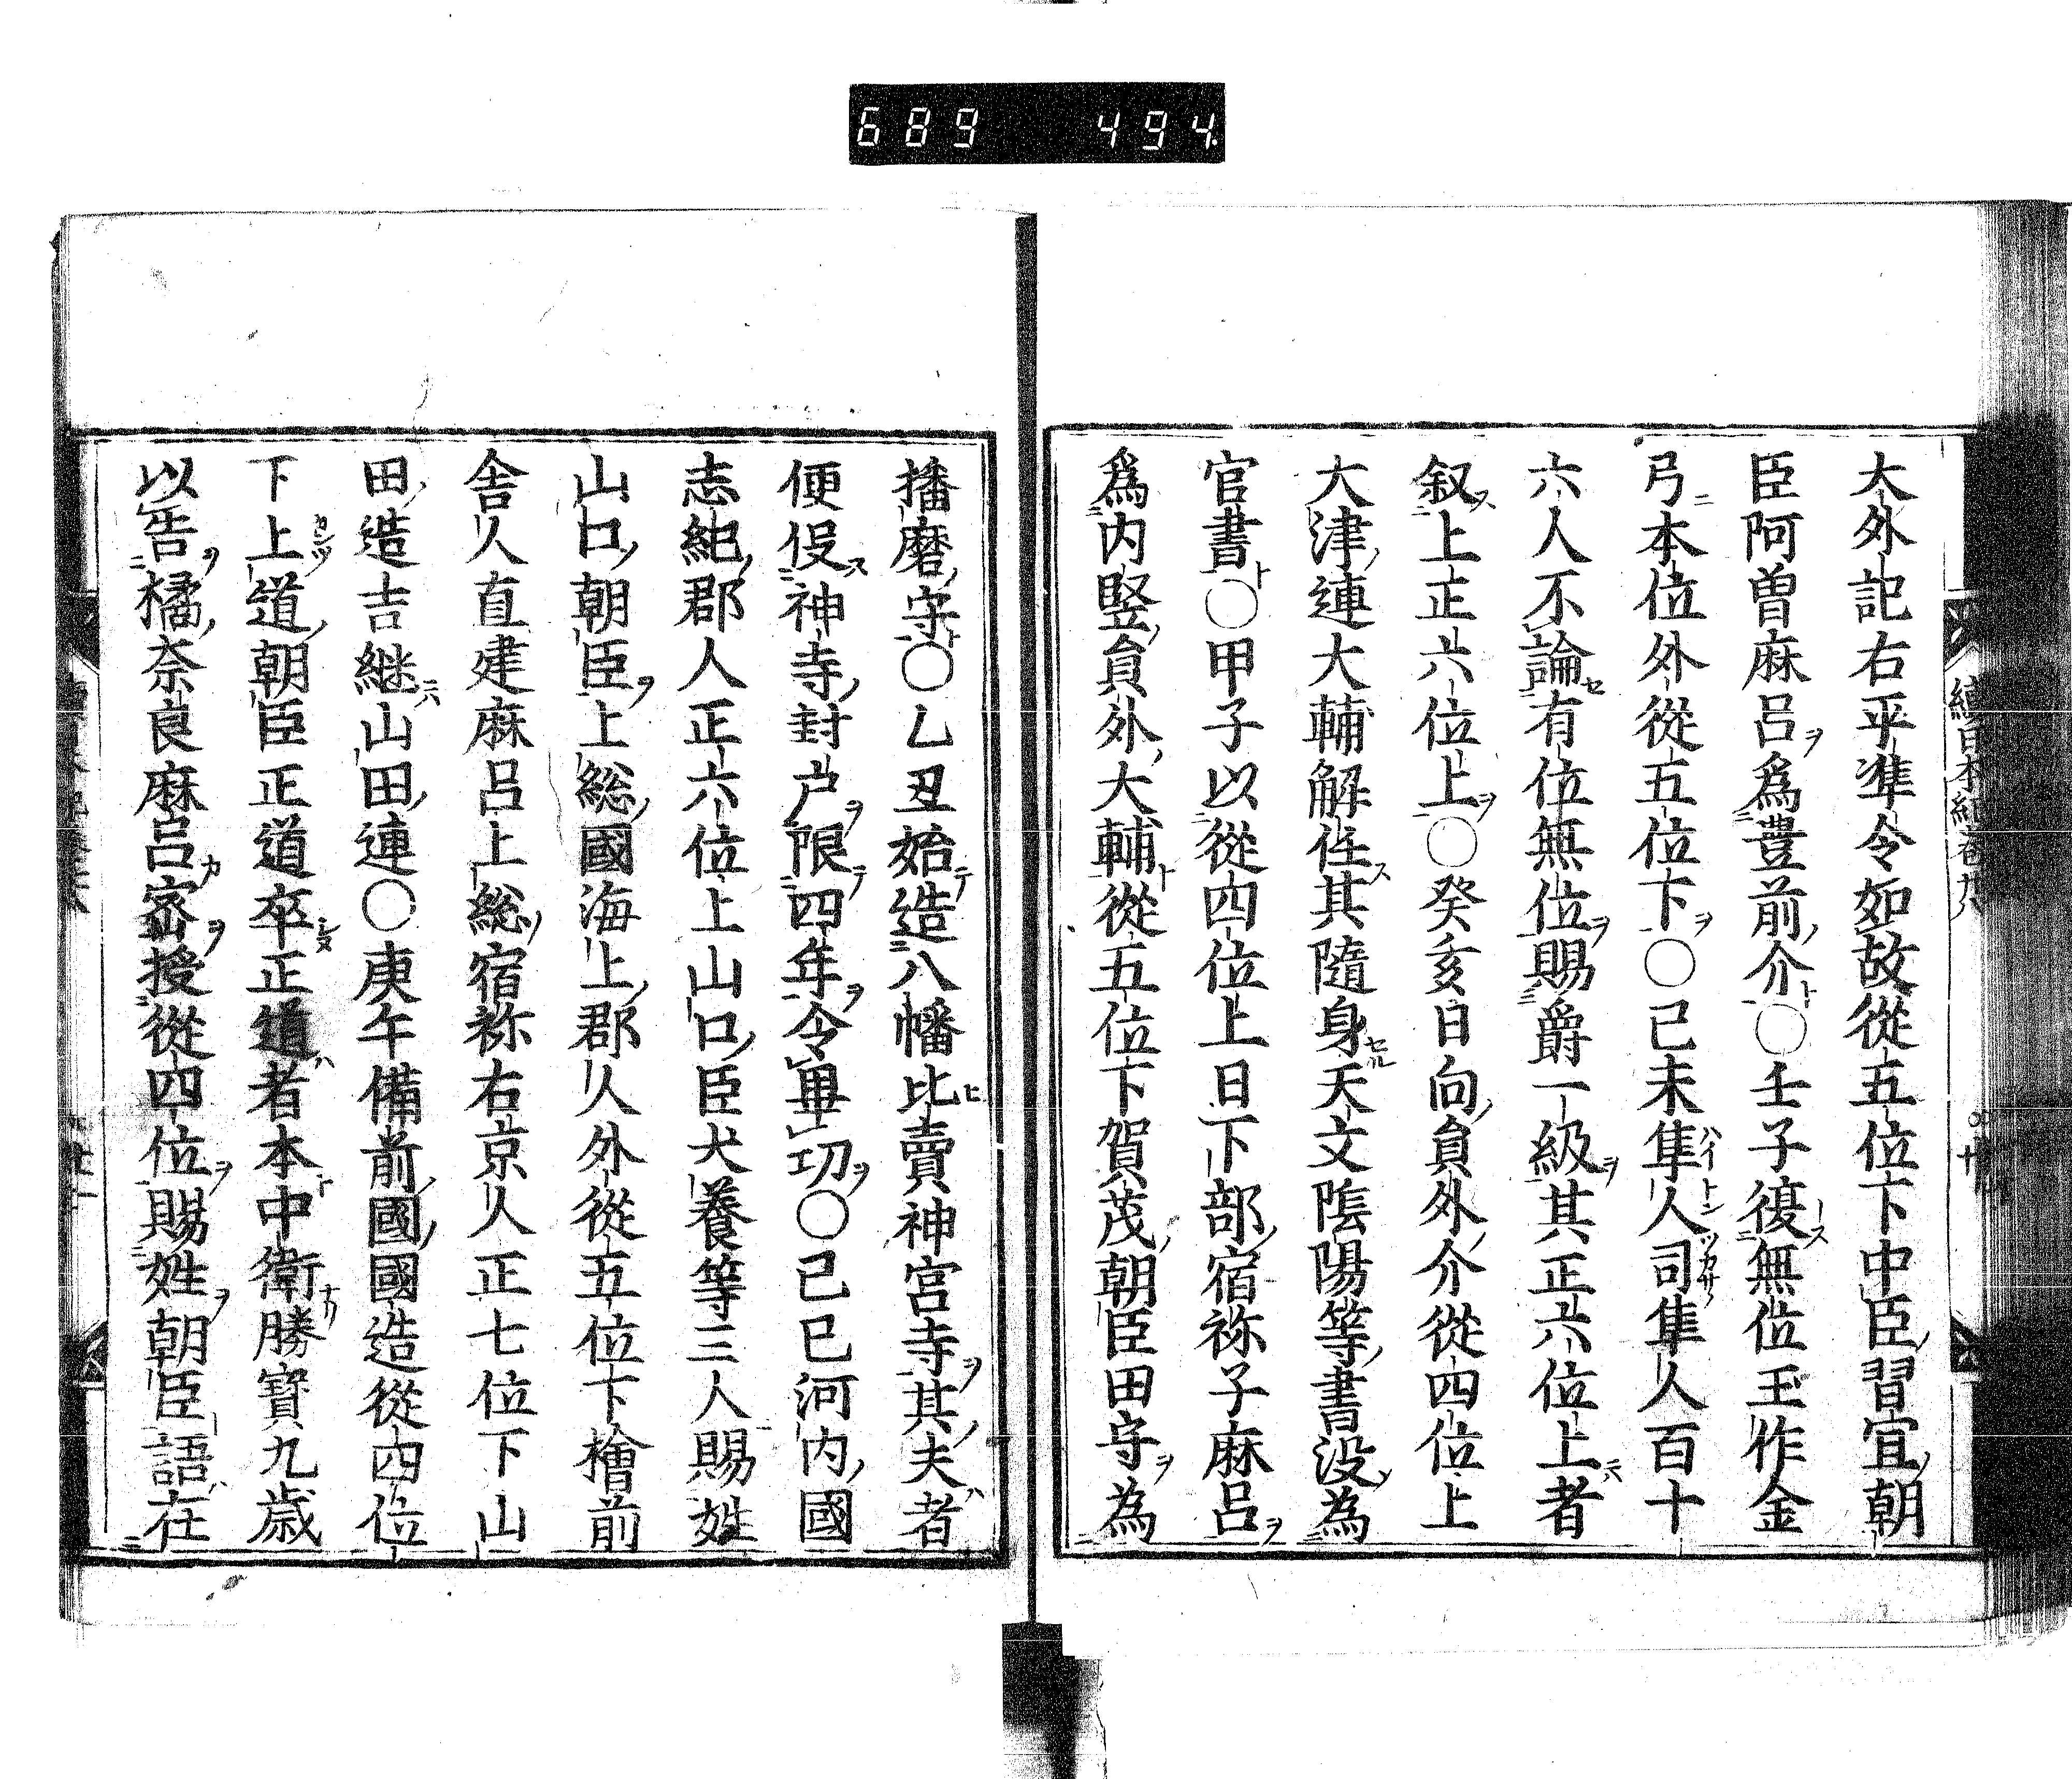 689 494.
大外記右平準令如故從五位下中臣習宜朝
臣阿曽麻呂爲豊前介〇壬子復無位王作金
弓本位外從五位下〇己未隼人司隼人百十
六人不論有位無位賜爵一級其正六位上者
叙上正六位上〇癸亥日向員外介從四位上
大津連大輔解任其隨身天文陰陽等書没為
官書〇甲子以從四位上日下部宿祢子麻呂
爲内竪員外大輔從五位下賀茂朝臣田守為
播磨守〇乙丑始造八幡比賣神宮寺其夫者
便役神寺封戸限四年令畢功〇己巳河内國
志紀郡人正六位上山口臣犬養等三人賜姓
山口朝臣上総國海上郡人外從五位下檜前
舎人直建麻呂上総宿祢右京人正七位下山
田造吉継山田連〇庚午備前國國造從四位
下上道朝臣正道卒正道者本中衛勝寳九歳
以告橘奈良麻呂密授從四位賜姓朝臣語在